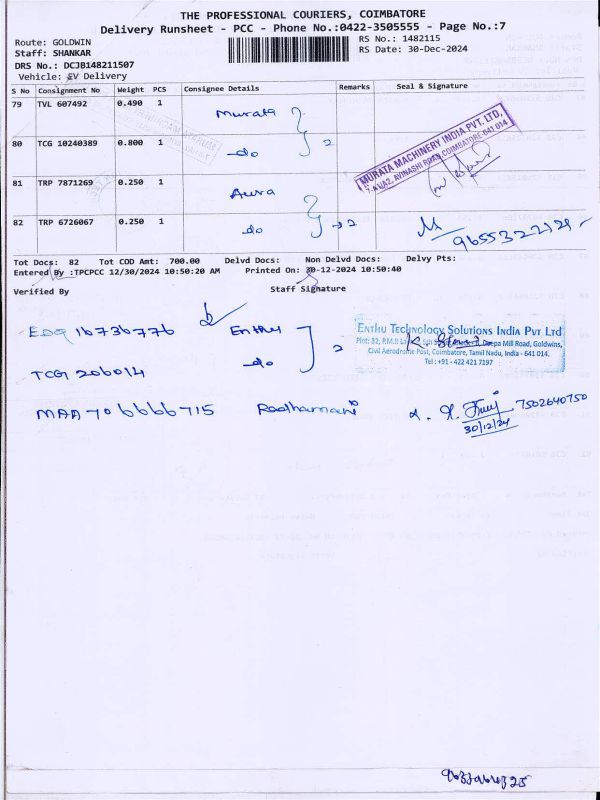 THE PROFESSIONAL COURIERS, COIMBATORE
Delivery Runsheet - PCC - Phone No.:0422-3505555 - Page No.:7
Route: GOLDWIN
Staff: SHANKAR
RS No.: 1482115
RS Date: 30-Dec-2024
DRS No.: DCJB148211507
Vehicle: EV Delivery
S No Consignment No Weight PCS Consignee Details Remarks Seal & Signature
79 TVL 607492 0.490 1 Murata
80 TCG 10240389 0.800 1 -do 2
MURATA MACHINERY INDIA PVT. LTD,
7-A1/A2, AVINASHI ROAD, COIMBATORE-641 014
81 TRP 7871269 0.250 1 Aura
82 TRP 6726067 0.250 1 do 2
Tot Docs: 82 Tot COD Amt: 700.00 Delvd Docs: Non Delvd Docs: Delvy Pts:
Entered By :TPCPCC 12/30/2024 10:50:20 AM Printed On: 30-12-2024 10:50:40
Verified By Staff Signature
EDQ 16736776 Enthu
TCG 206014 -do 2
Enthu Technology Solutions India Pvt Ltd
Deepa Mill Road, Goldwins,
Civil Aerodrome Post, Coimbatore, Tamil Nadu, India - 641 014.
Tel : +91 - 422 421 7197
MAA 706666715 Radhamani 7502640750
30/12/24